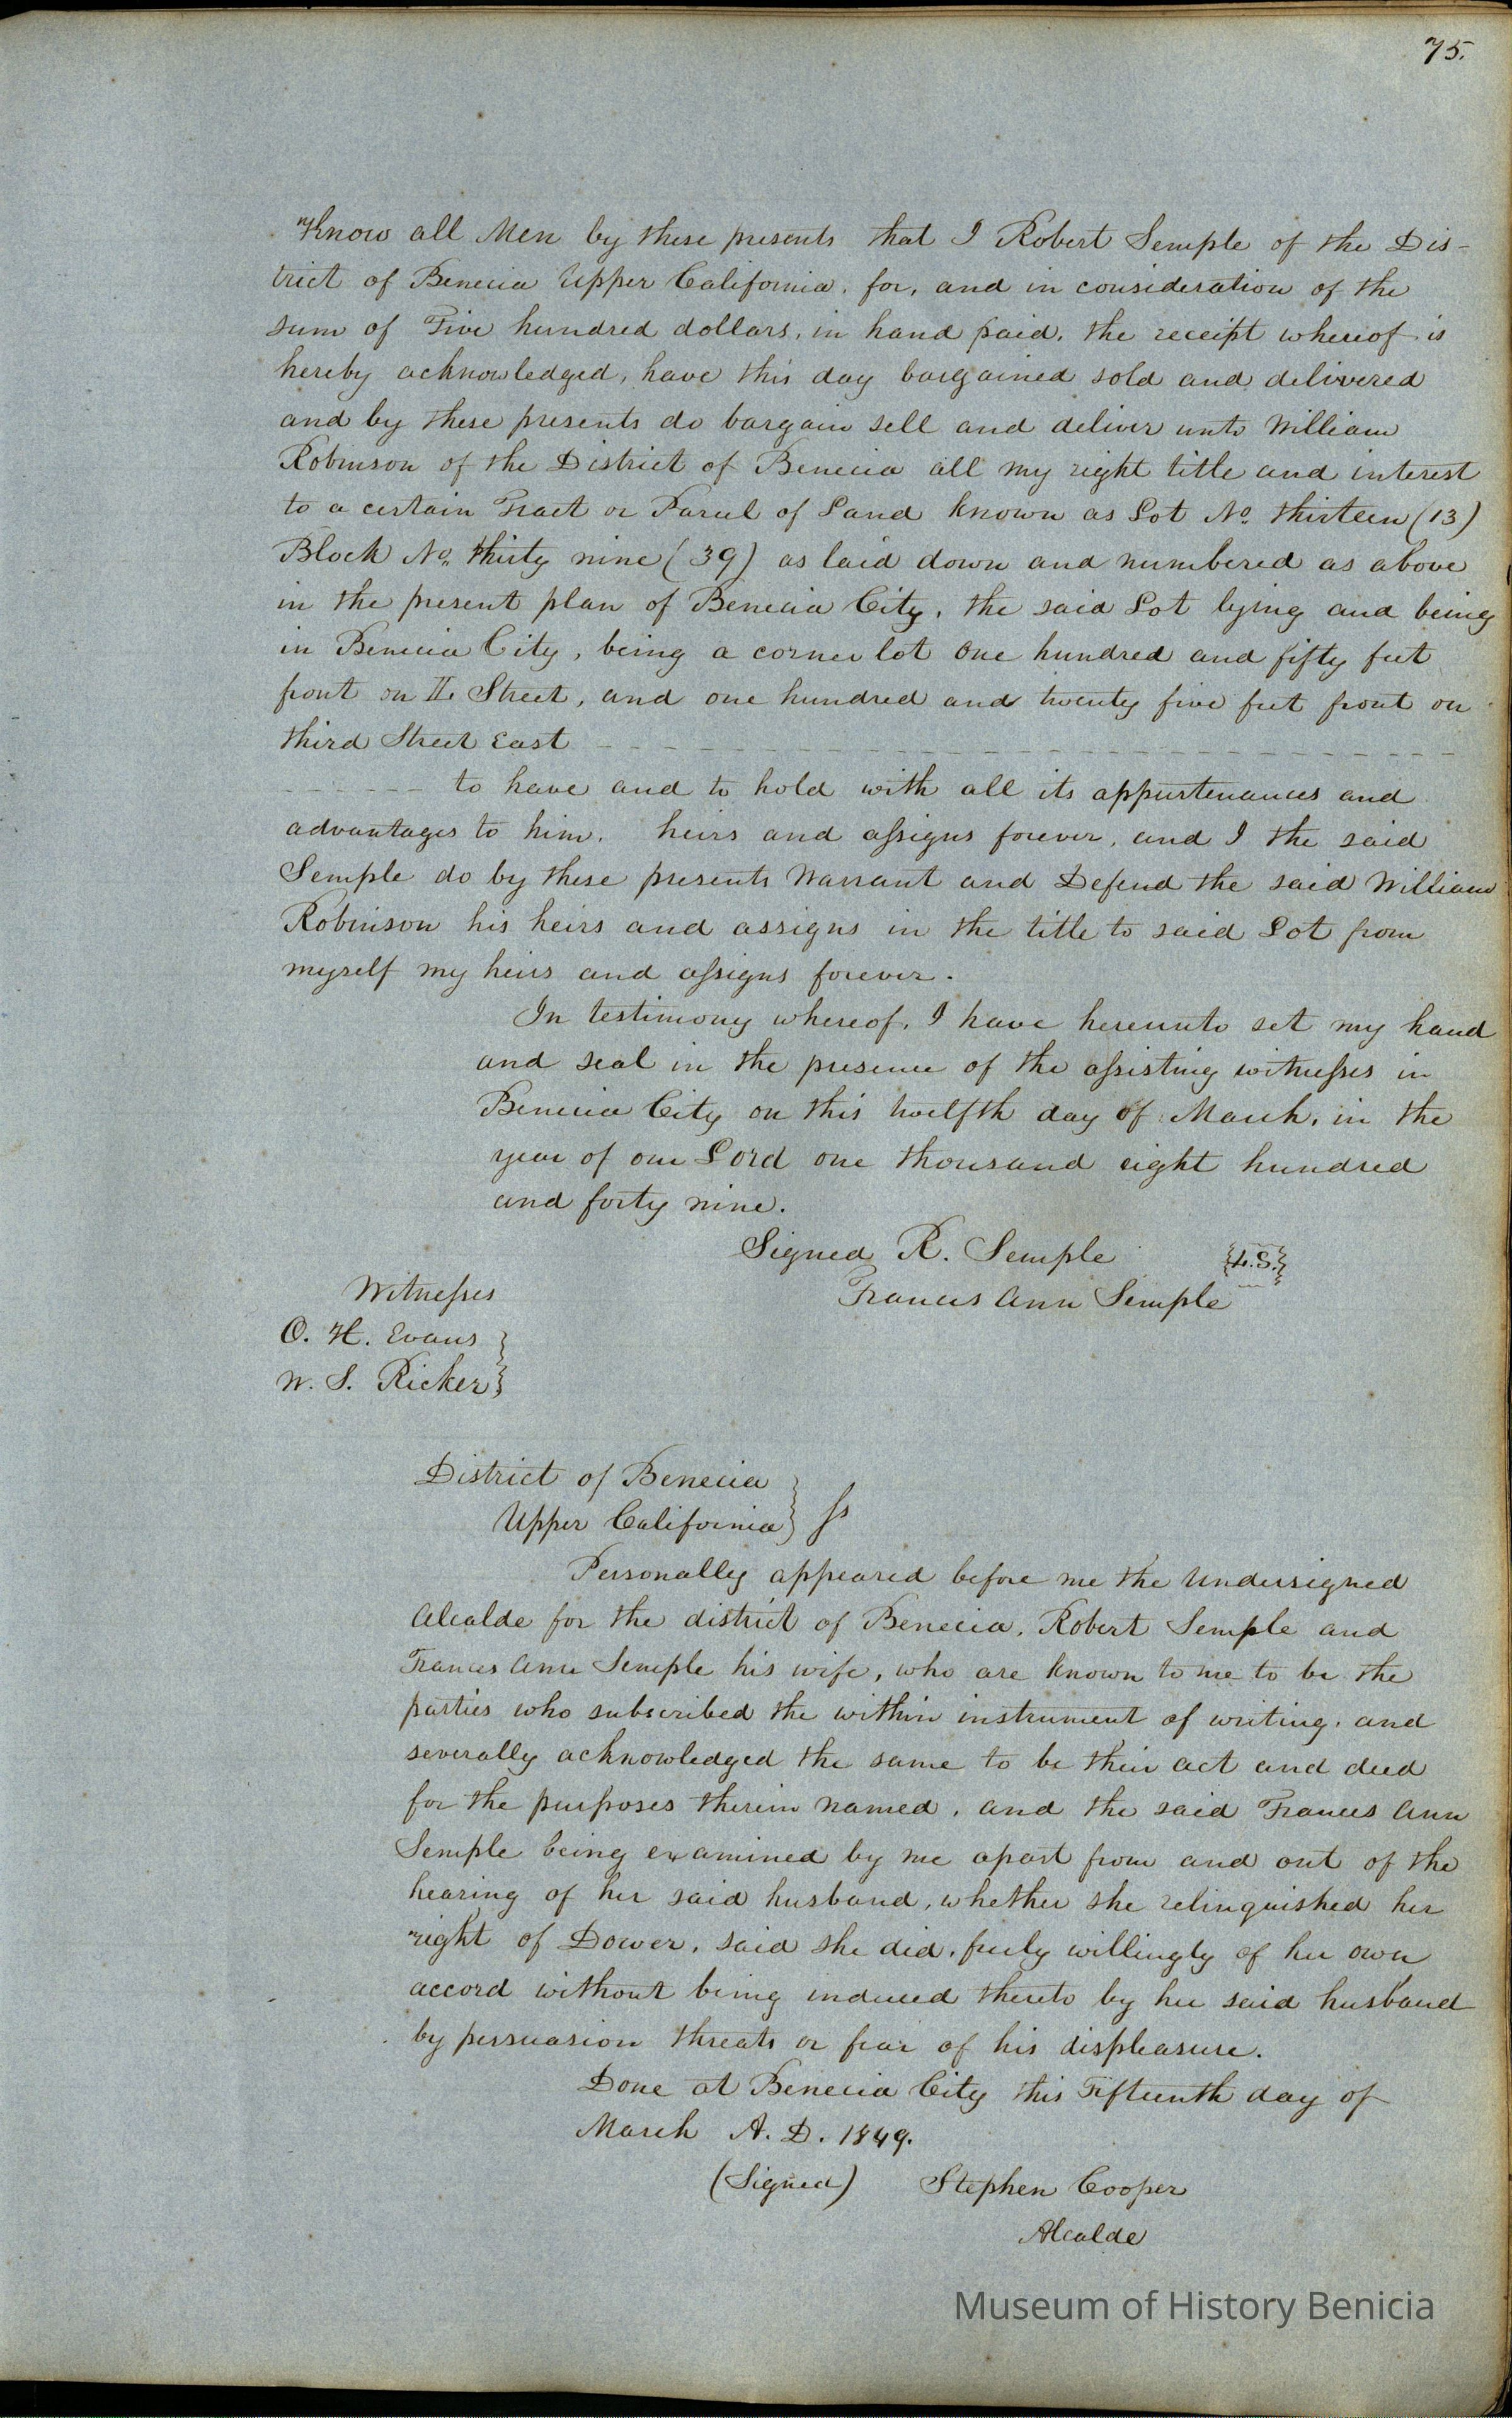 75.
Know all Men by these presents that I Robert Semple of the Dis-
trict of Benecia Upper California, for, and in consideration of the
sum of Five hundred dollars, in hand paid, the receipt whereof is
hereby acknowledged, have this day bargained sold and delivered
and by these presents do bargain sell and deliver unto William
Robinson of the District of Benecia all my right title and interest
to a certain Tract or Parcel of Land known as Lot No. thirteen (13)
Block No. thirty nine (39) as laid down and numbered as above
in the present plan of Benecia City, the said Lot lying and being
in Benecia City, being a corner lot One hundred and fifty feet
front on II. Street, and one hundred and twenty five feet front on
third Street East
to have and to hold with all its appurtenances and
advantages to him, heirs and assigns forever, and I the said
Semple do by these presents Warrant and Defend the said William
Robinson his heirs and assigns in the title to said Lot from
myself my heirs and assigns forever.
In testimony whereof, I have hereunto set my hand
and seal in the presence of the assisting witnesses in
Benecia City on this twelfth day of March, in the
year of our Lord one thousand eight hundred
and forty nine.
Signed R. Semple {L.S.}
Witnesses
Frances Ann Semple
O. H. Evans
W. S. Ricker
District of Benecia
Upper California } ss
Personally appeared before me the Undersigned
Alcalde for the district of Benecia, Robert Semple and
Frances Ann Semple his wife, who are known to me to be the
parties who subscribed the within instrument of writing, and
severally acknowledged the same to be their act and deed
for the purposes therein named, and the said Frances Ann
Semple being examined by me apart from and out of the
hearing of her said husband, whether she relinquished her
right of Dower, said she did, freely willingly of her own
accord without being induced thereto by her said husband
by persuasion threats or fear of his displeasure.
Done at Benecia City this Fifteenth day of
March A. D. 1849.
(Signed) Stephen Cooper
Alcalde
Museum of History Benicia